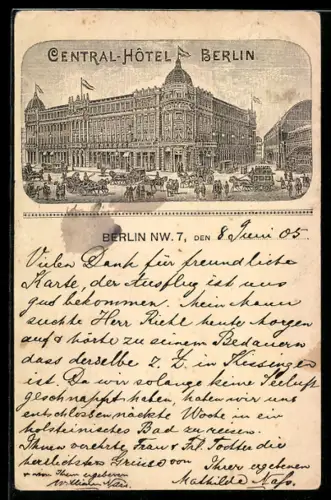 CENTRAL-HÔTEL BERLIN
BERLIN NW. 7, DEN 8 Juni 05.
Vielen Dank für freundliche
Karte, der Ausflug ist uns
gut bekommen. Mein Mann
suchte Herr Riehl heute Morgen
auf & hörte zu seinem Bedauern
dass derselbe z. Z. in Kissingen
ist. Da wir solange keine Seeluft
geschnappt haben, haben wir uns
entschlossen nächste Woche in ein
holsteinisches Bad zu reisen.
Ihnen verehrte Frau & Frl. Tochter die
herzlichsten Grüsse von Ihrer ergebenen
Mathilde
& von Ihrem ergebenen
Wilhelm